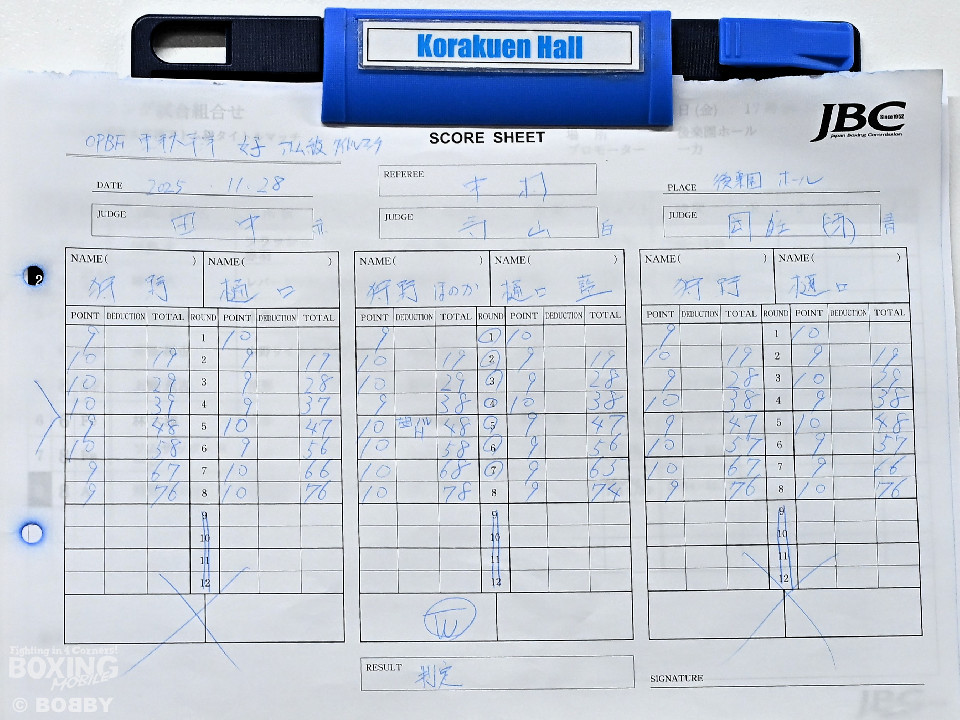 Korakuen Hall
JBC
Since 1952
Japan Boxing Commission
SCORE SHEET
OPBF 女子 アトム級 タイトルマッチ
DATE 2025 . 11 . 28
REFEREE 中村
PLACE 後楽園 ホール
JUDGE 田中 赤
JUDGE 寺山 白
JUDGE 青
NAME( ) NAME( ) NAME( ) NAME( ) NAME( ) NAME( )
狩野 樋口 狩野 ほのか 樋口 藍 狩野 樋口
POINT DEDUCTION TOTAL ROUND POINT DEDUCTION TOTAL POINT DEDUCTION TOTAL ROUND POINT DEDUCTION TOTAL POINT DEDUCTION TOTAL ROUND POINT DEDUCTION TOTAL
9 1 10 9 1 10 9 1 10
10 19 2 9 19 10 19 2 9 19 10 19 2 9 19
10 29 3 9 28 10 29 3 9 28 9 28 3 10 29
10 39 4 9 37 9 38 4 10 38 10 38 4 9 38
9 48 5 10 47 10 48 5 9 47 9 47 5 10 48
10 58 6 9 56 10 58 6 9 56 10 57 6 9 57
9 67 7 10 66 10 68 7 9 65 10 67 7 9 66
9 76 8 10 76 10 78 8 9 74 9 76 8 10 76
9 9 9
10 10 10
11 11 11
12 12 12
W
RESULT 判定
SIGNATURE
Fighting in 4 Corners!
BOXING
MOBILE
© BOBBY